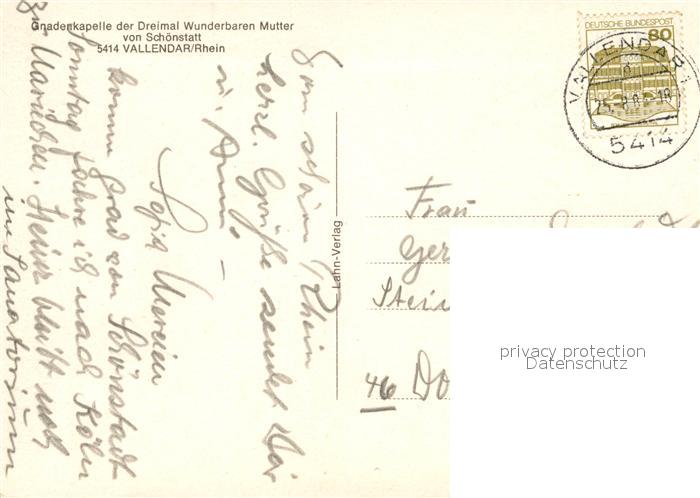 Gnadenkapelle der Dreimal Wunderbaren Mutter
von Schönstatt
5414 VALLENDAR/Rhein
Vom schönen Rhein
herzl. Grüße sendet Dir
u.
komm grad von Schönstadt
Sonntag fahre ich nach Köln
zu Mariechen. Heinz bleibt noch
im Sanatorium
Lahn-Verlag
DEUTSCHE BUNDESPOST
80
VALLENDAR 1
5414
Frau
Ger
Stein
46 Do
privacy protection
Datenschutz